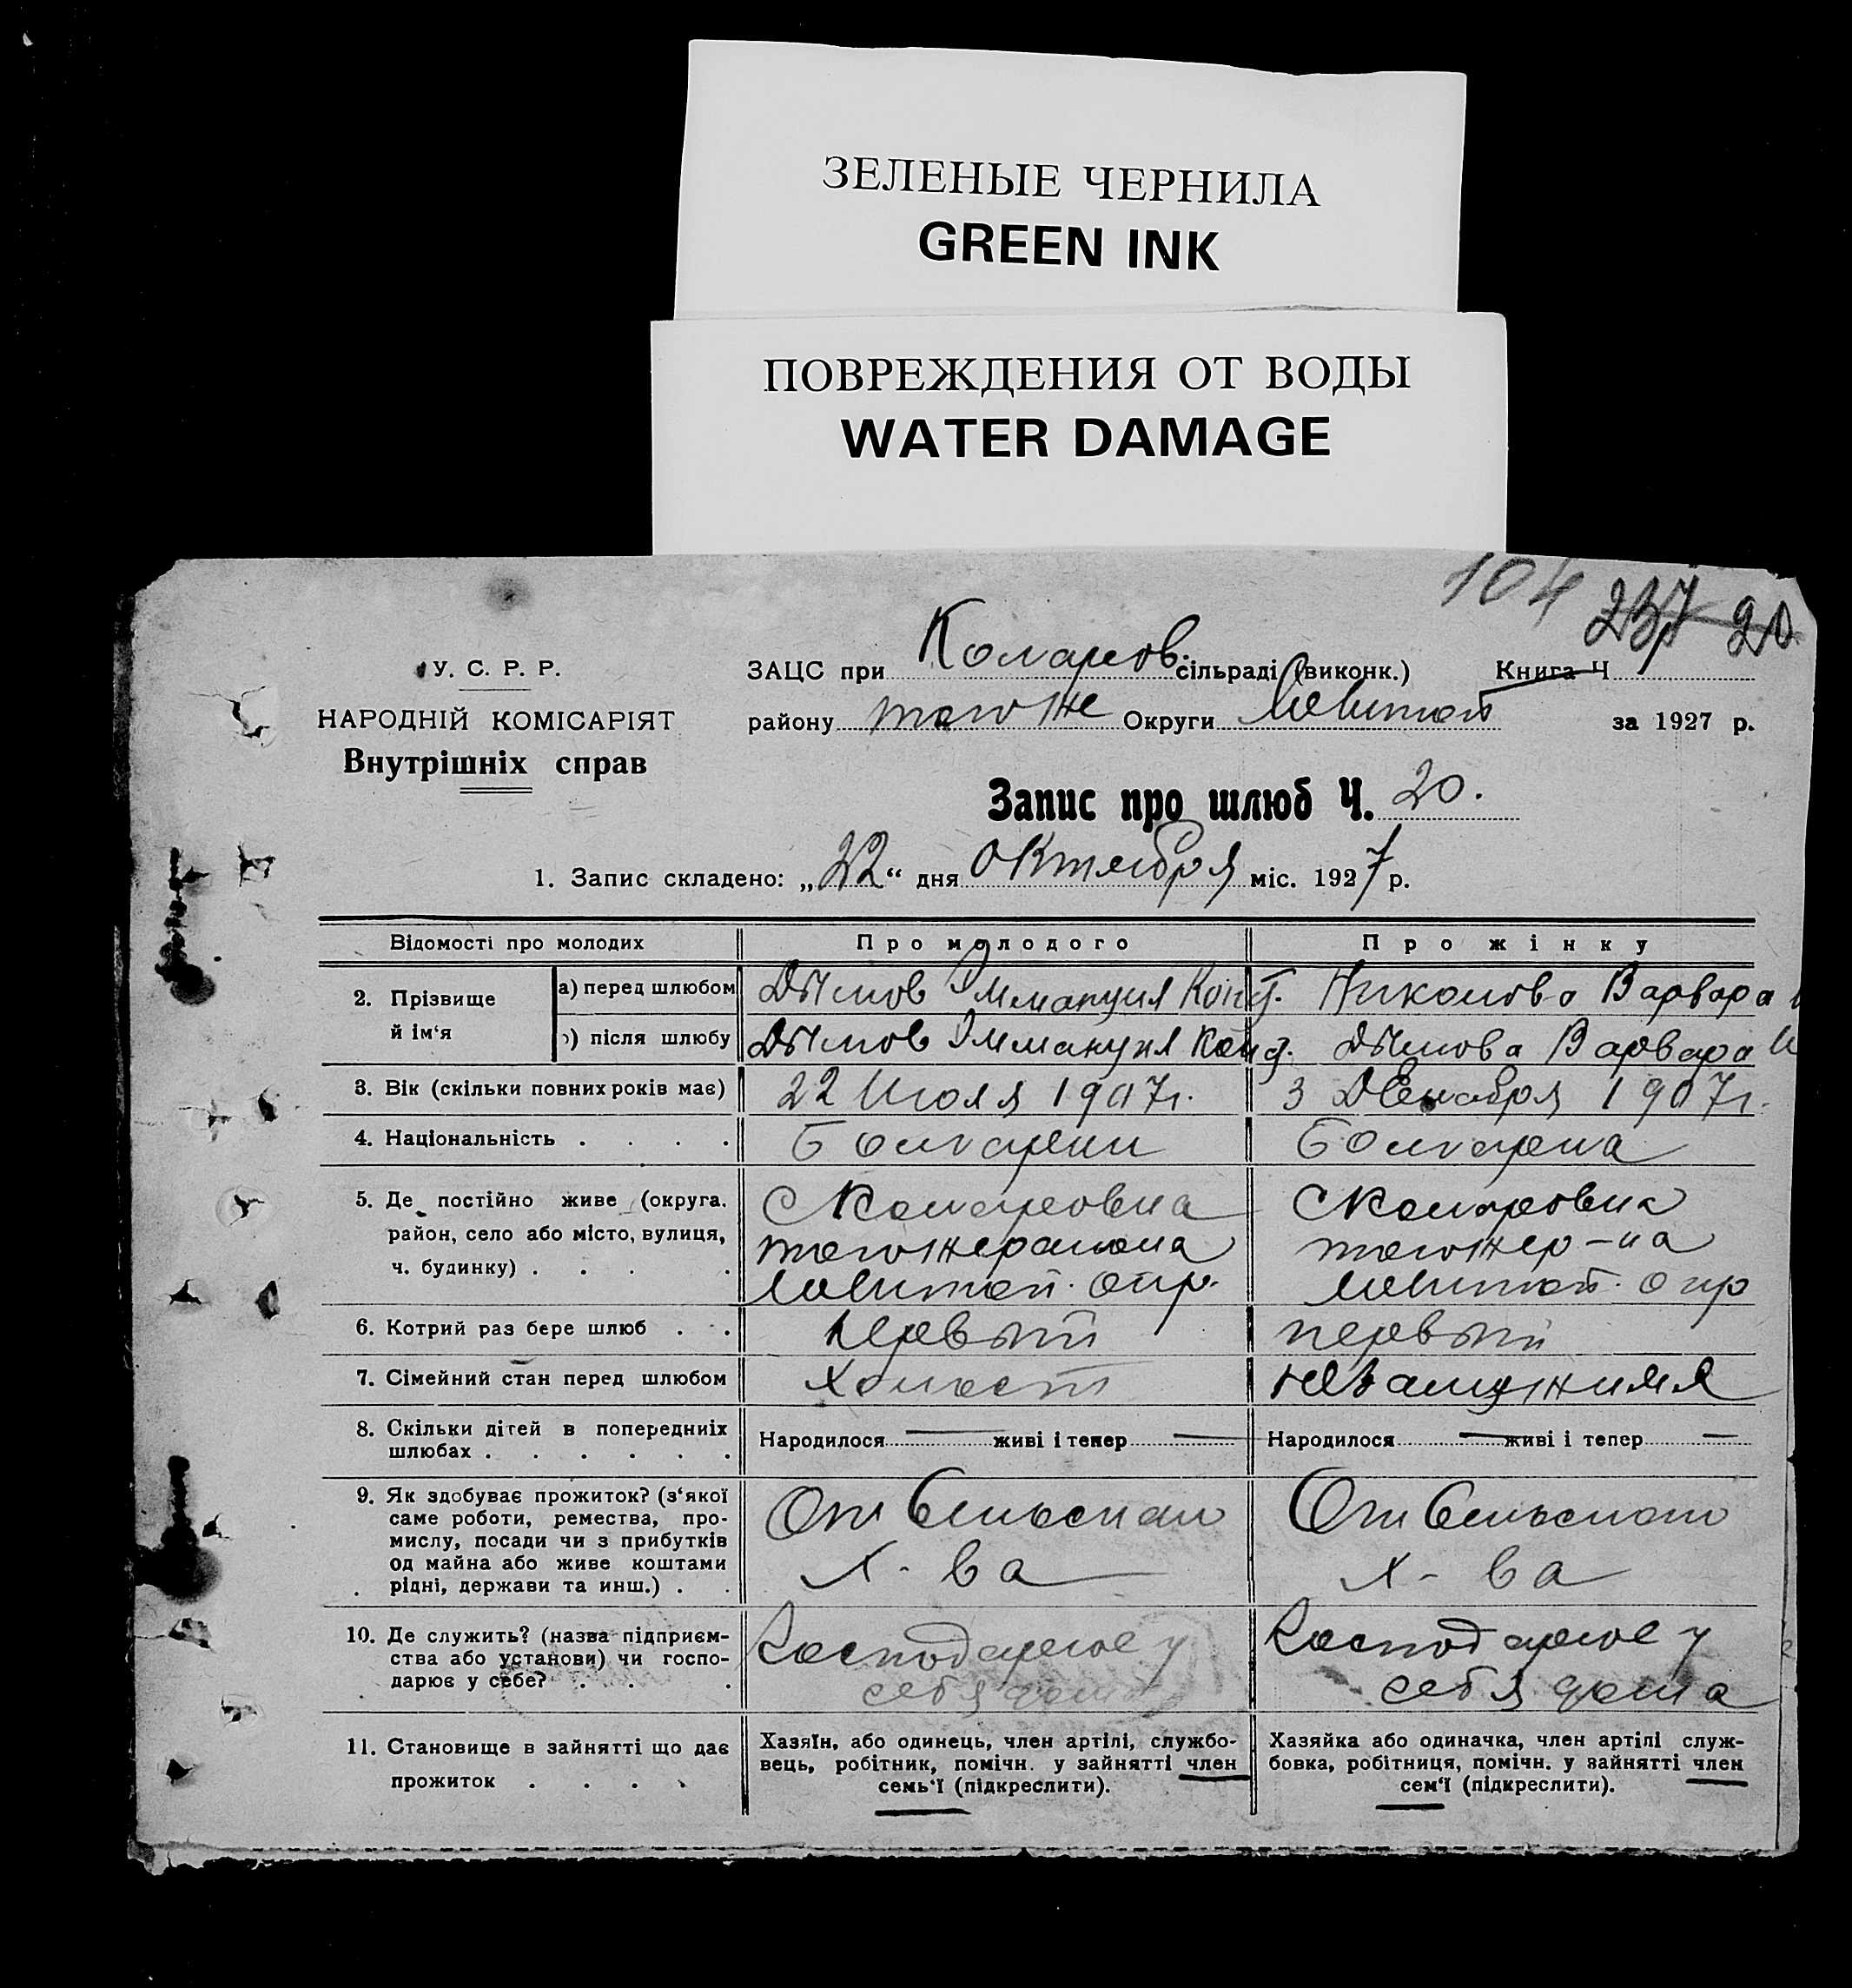 ЗЕЛЕНЫЕ ЧЕРНИЛА
GREEN INK
ПОВРЕЖДЕНИЯ ОТ ВОДЫ
WATER DAMAGE
104 237 20
У. С. Р. Р.
НАРОДНІЙ КОМІСАРІЯТ
Внутрішніх справ
ЗАЦС при Коларов. сільраді (виконк.) Книга Ч
району того же Округи за 1927 р.
Запис про шлюб Ч. 20.
1. Запис складено: „22“ дня Октября міс. 1927 р.
Відомості про молодих Про молодого Про жінку
2. Прізвище й ім‘я
а) перед шлюбом Дымов Эммануил Конст. Николова Варвара
б) після шлюбу Дымов Эммануил Конст. Дымова Варвара
3. Вік (скільки повних років має) 22 Июля 1907 г. 3 Декабря 1907 г.
4. Національність . . . . Болгарин Болгарка
5. Де постійно живе (округа, район, село або місто, вулиця, ч. будинку) . . . .
С Коларовка того же района Мелитоп. окр.
С Коларовка того же р-на Мелитоп. окр
6. Котрий раз бере шлюб . . первый первый
7. Сімейний стан перед шлюбом холост незамужняя
8. Скільки дітей в попередниіх шлюбах . . . . . .
Народилося — живі і тепер — Народилося — живі і тепер —
9. Як здобуває прожиток? (з‘якої саме роботи, ремества, промислу, посади чи з прибутків од майна або живе коштами рідні, держави та инш.) . .
От сельского х-ва
От сельского х-ва
10. Де служить? (назва підприємства або установи) чи господарює у себе? . . .
у себя дома
у себя дома
11. Становище в зайнятті що дає прожиток . . . .
Хазяїн, або одинець, член артілі, службовець, робітник, помічн. у зайнятті член семь‘ї (підкреслити).
Хазяйка або одиначка, член артілі службовка, робітниця, помічн. у зайнятті член сем‘ї (підкреслити).